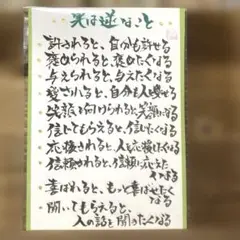 実は逆なこと
許されると、自分も許せる
褒められると、褒めたくなる
与えられると、与えたくなる
愛されると、自分も人を愛せる
笑顔を向けられると笑顔になる
信じてもらえると、信じたくなる
応援されると、人も応援したくなる
信頼されると、信頼に応えたくなる
喜ばれると、もっと喜ばせたくなる
聞いてもらえると、
人の話を聞きたくなる